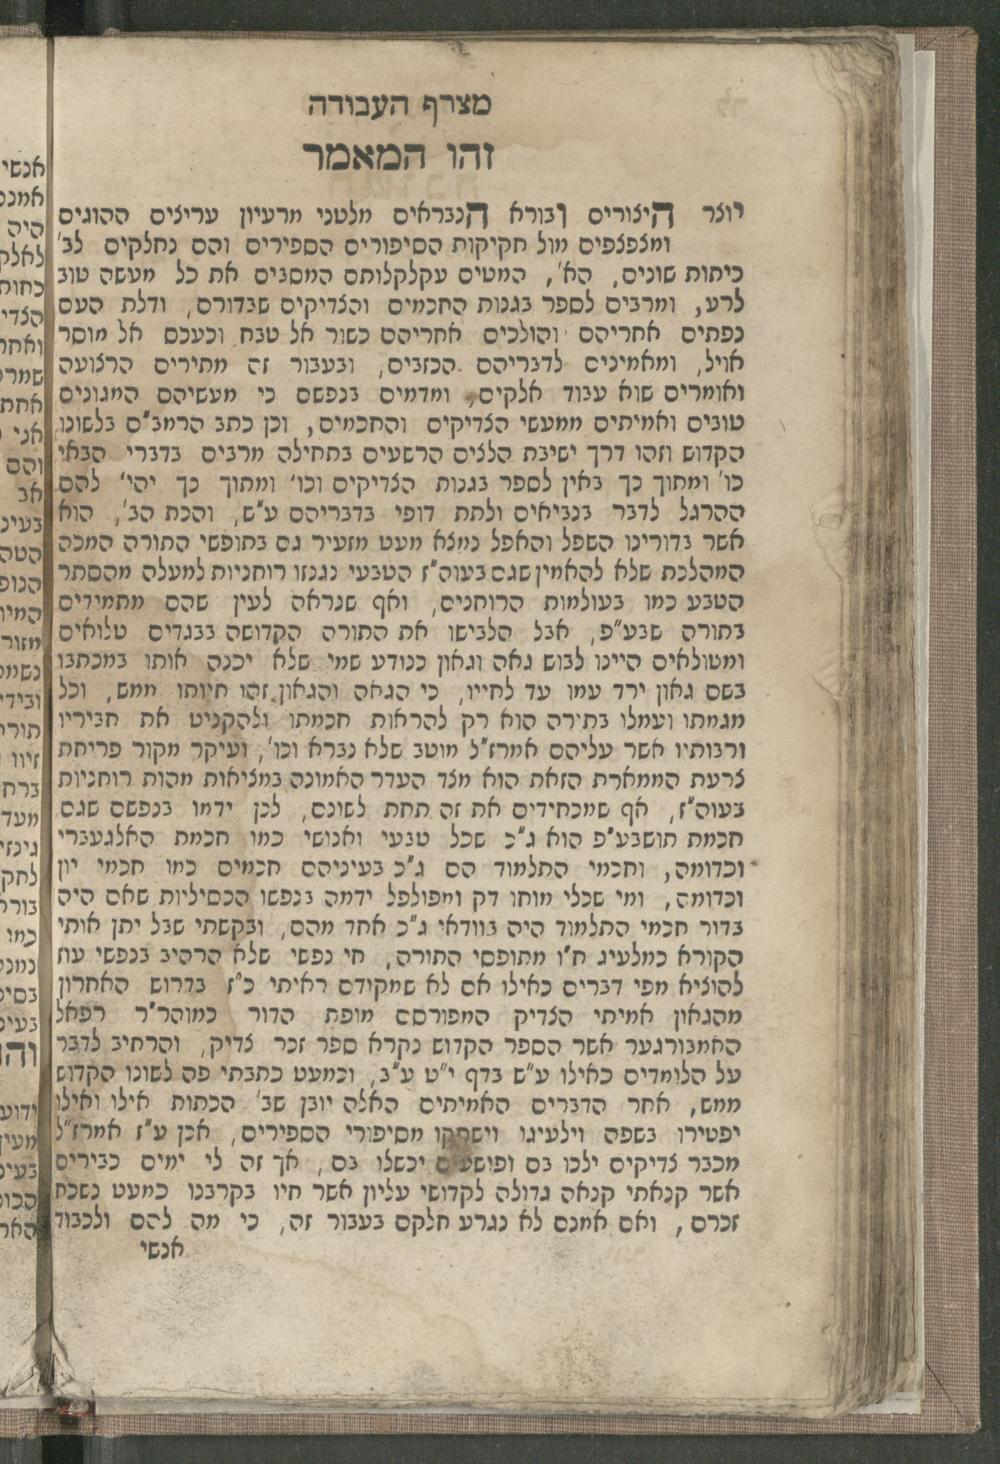 מצרף העבודה
זהו המאמר
יוצר היצורים ובורא הנבראים מלטני מרעיון עריצים ההוגים
ומצפצפים מול חקיקות הסיפורים הספירים והם נחלקים לב'
כיתות שונים, הא', המטים עקלקלותם המסבים את כל מעשה טוב
לרע, ומרבים לספר בגנות החכמים והצדיקים שבדורם, ודלת העם
נפתים אחריהם והולכים אחריהם כשור אל טבח וכעכס אל מוסר
אויל, ומאמינים לדבריהם הכוזבים, ובעבור זה מתירים הרצועה
ואומרים שוא עבוד אלקים, ומדמים בנפשם כי מעשיהם המגונים
טובים ואמיתים ממעשי הצדיקים והחכמים, וכן כתב הרמב"ם בלשונו
הקדוש וזהו דרך ישיבת הלצים הרשעים בתחילה מרבים בדברי הבאי
כו' ומתוך כך באין לספר בגנות הצדיקים וכו' ומתוך כך יהי' להם
ההרגל לדבר בנביאים ולתת דופי בדבריהם ע"ש, והכת הב', הוא
אשר בדורינו השפל והאפל נמצא מעט מזעיר גם בתופשי התורה המכה
המהלכת שלא להאמין שגם בעוה"ז הטבעי נגנזו רוחניות למעלה מהסתר
הטבע כמו בעולמות הרוחנים, ואף שנראה לעין שהם מתמידים
בתורה שבע"פ, אבל הלבישו את התורה הקדושה בבגדים טלואים
ומטולאים היינו לבוש גאה וגאון כנודע שמי שלא יכנה אותו במכתבו
בשם גאון ירד עמו עד לחייו, כי הגאה והגאון זהו חיותו ממש, וכל
מגמתו ועמלו בתירה הוא רק להראות חכמתו ולהקניט את חביריו
ורבותיו אשר עליהם אמרז"ל מוטב שלא נברא וכו', ועיקר מקור פריחת
צרעת הממארת הזאת הוא מצד העדר האמונה במציאות מהות רוחניות
בעוה"ז, אף שמכחידים את זה תחת לשונם, לכן ידמו בנפשם שגם
חכמת תושבע"פ הוא ג"כ שכל טבעי ואנושי כמו חכמת האלגעברי
וכדומה, וחכמי התלמוד הם ג"כ בעיניהם חכמים כמו חכמי יון
וכדומה, ומי שכלי מוחו דק ומפולפל ידמה בנפשו הכסיליות שאם היה
בדור חכמי התלמוד היה בוודאי ג"כ אחד מהם, ובקשתי שבל יתן אותי
הקורא כמלעיג ח"ו מתופסי התורה, חי נפשי שלא הרהיב בנפשי עוז
להוציא מפי דברים כאילו אם לא שמקודם ראיתי כ"ז בדרוש האחרון
מהגאון אמיתי הצדיק המפורסם מופת הדור כמוהר"ר רפאל
האמבורגער אשר הספר הקדוש נקרא ספר זכר צדיק, והרחיב לדבר
על הלומדים כאילו ע"ש בדף י"ט ע"ב, וכמעט כתבתי פה לשונו הקדוש
ממש, אחר הדברים האמיתים האלה יובן שב' הכתות אילו ואילו
יפטירו בשפה וילעיגו וישחקו מסיפורי הספירים, אכן ע"ז אמרז"ל
מכבר צדיקים ילכו בם ופושעים יכשלו בם, אך זה לי ימים כבירים
אשר קנאתי קנאה גדולה לקדושי עליון אשר חיו בקרבנו כמעט נשכח
זכרם, ואם אמנם לא נגרע חלקם בעבור זה, כי מה להם ולכבוד
אנשי